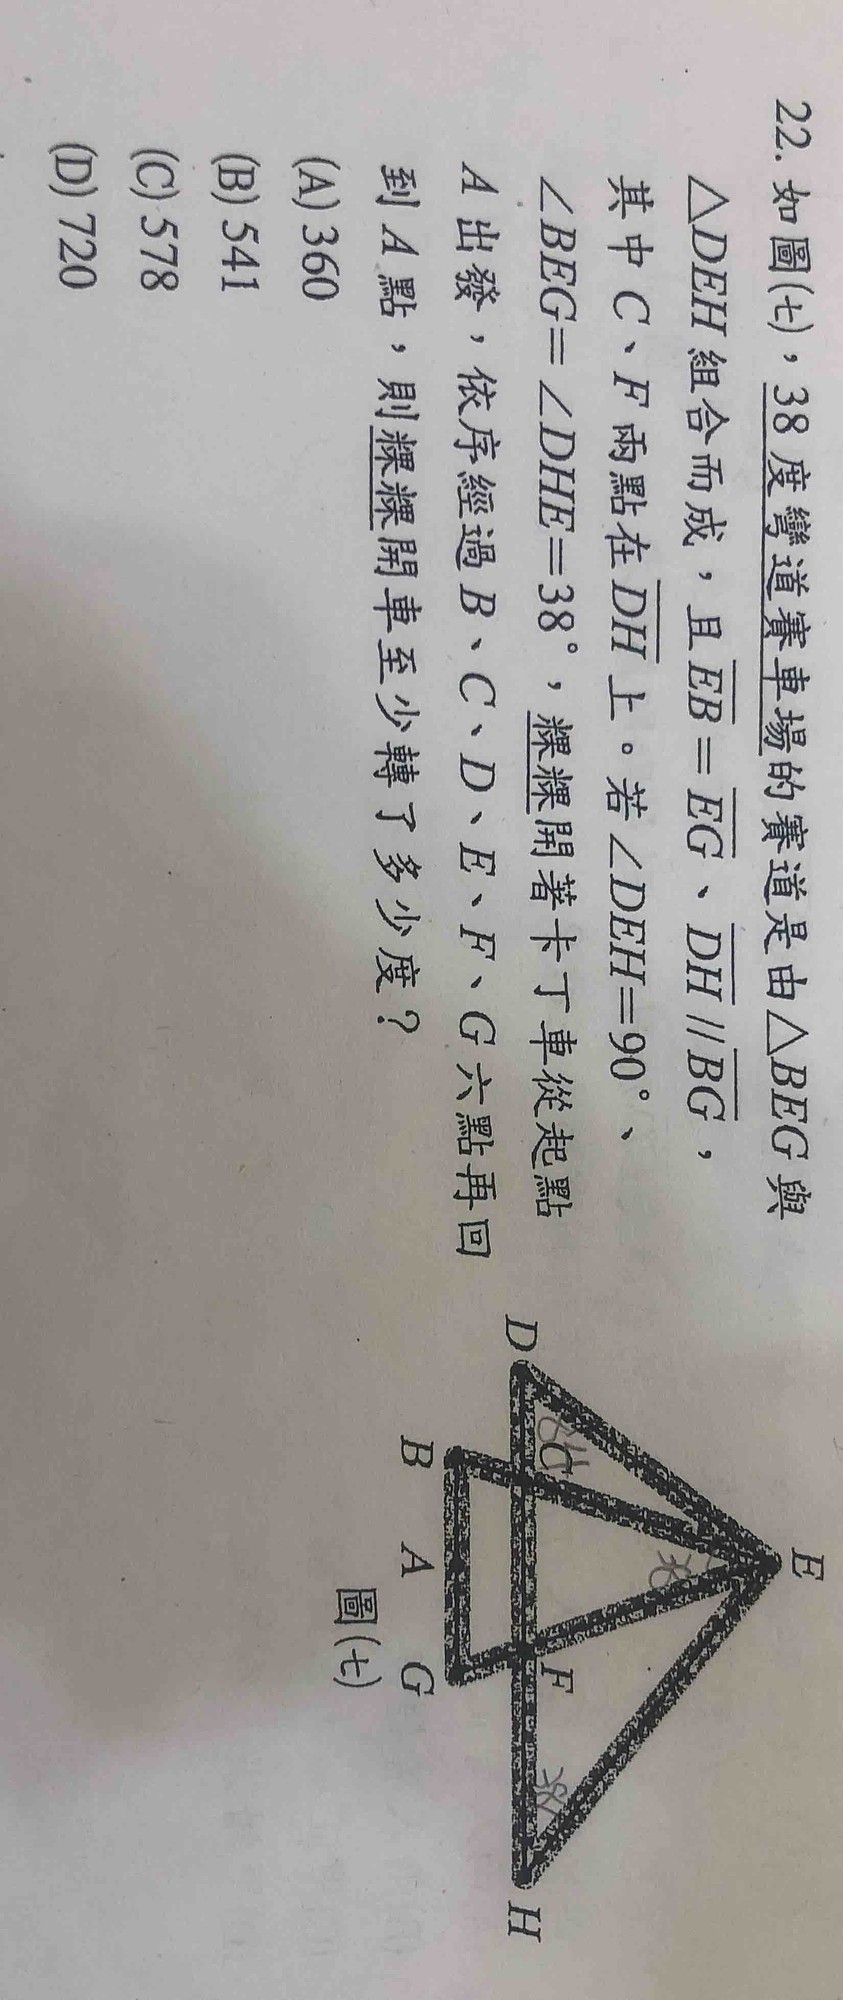 22. 如圖(七)，38度彎道賽車場的賽道是由△BEG與
△DEH組合而成，且EB=EG、DH//BG，
其中C、F兩點在DH上。若∠DEH=90°、
∠BEG=∠DHE=38°，粿粿開著卡丁車從起點
A出發，依序經過B、C、D、E、F、G六點再回
到A點，則粿粿開車至少轉了多少度？
(A) 360
(B) 541
(C) 578
(D) 720
E
38
D
C
F
38
H
B
A
G
圖(七)